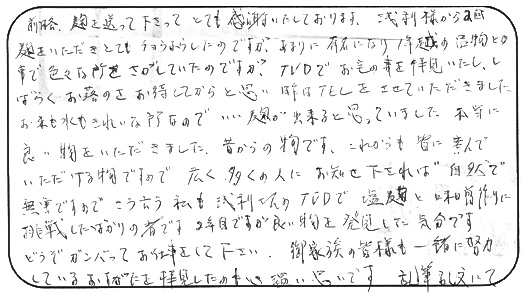 前略、麹を送って下さって とても感謝いたしております。浅利様から2回
麹をいただきとても ちょうほうしたのですが? あまりに有名になり 1年越の品物との
事で色々な所をさがしていたのですが? TVDでお宅の事を拝見いたし、し
ばらくお落のをお待してからと思い 昨日TELをさせていただきました
お米も水もきれいな所なので …… 麹が出来ると思っていました 本当に
良い物をいただきました、昔からの物です、これからも皆に喜んで
いただける物ですので 広く 多くの人に お知せ下されば "自然"で
無害ですので こう言う 私も浅利さんのTVDで 塩麹と味噌作りに
挑戦したばかりの者です 2年目ですが良い物を発見した気分です
どうぞガンバってお仕事をして下さい、御家族の皆様も一緒に努力
しているおすがたを拝見したのも 強い思いです 乱筆ゆえにて